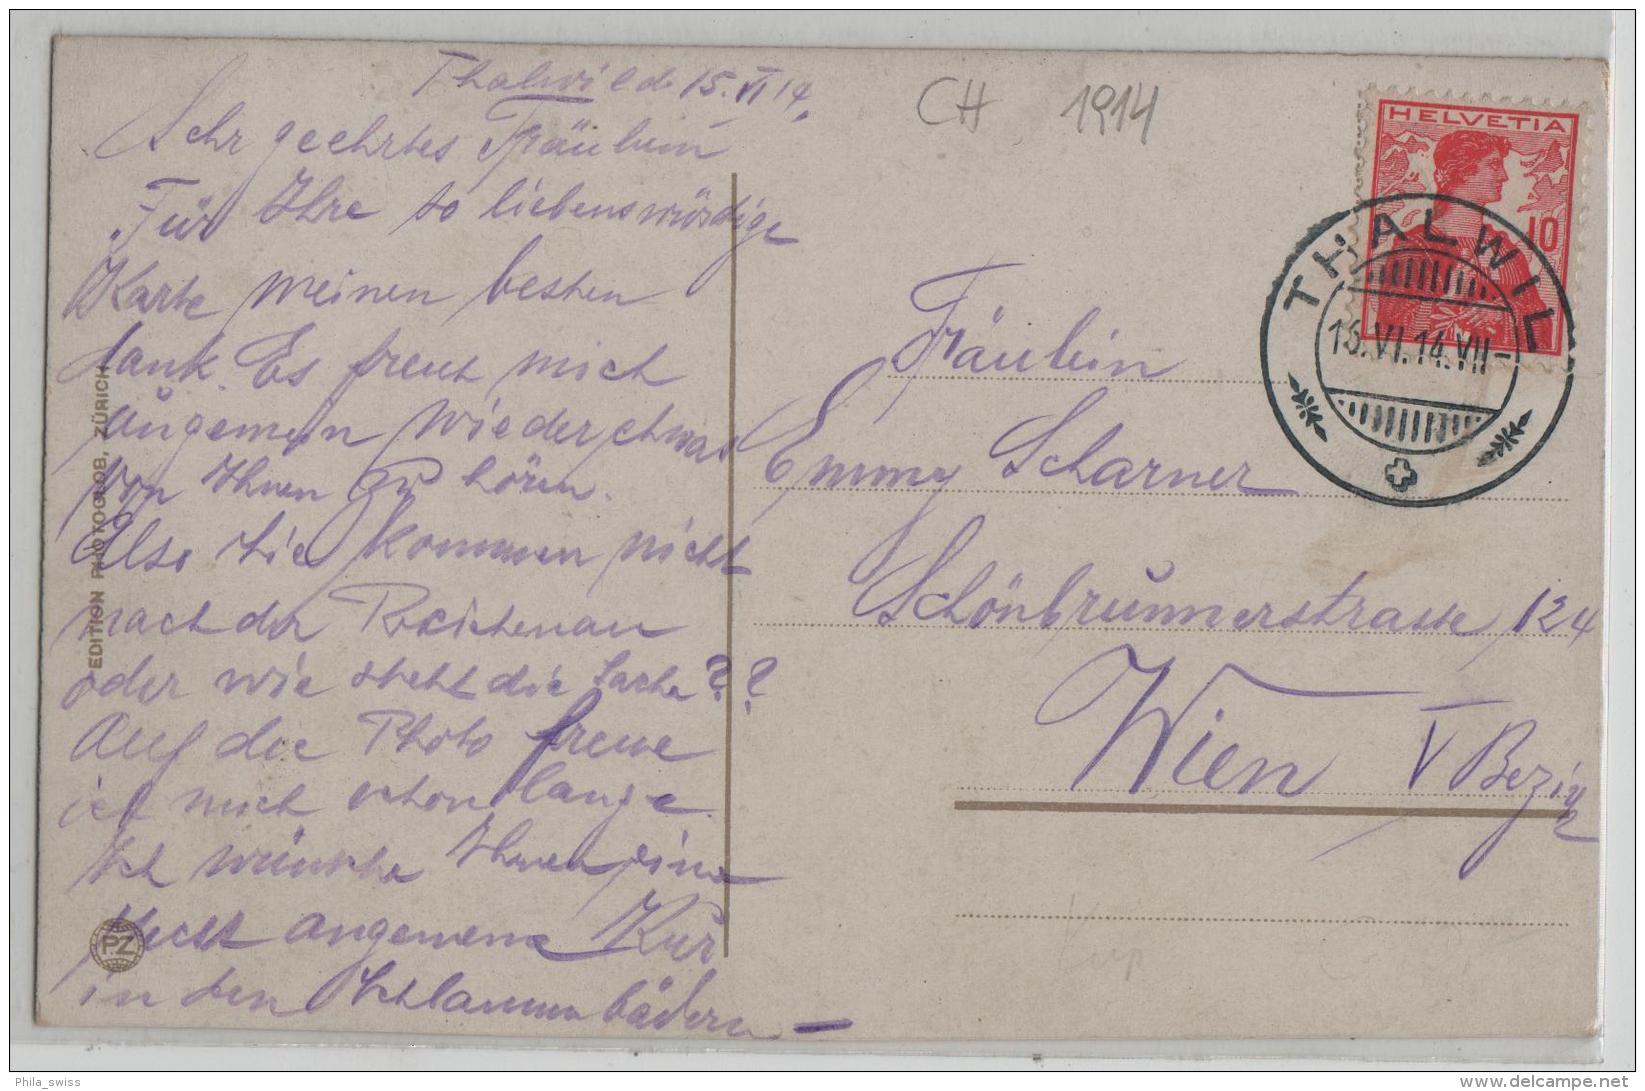 Thalwil d. 15. VI 14.
CH 1914
Sehr geehrtes Fräulein
Für Ihre so liebenswürdige
Karte meinen besten
dank. Es freut mich
ungemein wieder etwas
von Ihnen zu hören.
Also Sie kommen nicht
nach der Reichenau
oder wie steht die Sache??
Auf die Photo freue
ich mich schon lange.
Ich wünsche Ihnen eine
recht angenehme Kur
in den Schlammbädern –
EDITION PHOTOGLOB, ZÜRICH
PZ
HELVETIA
10
THALWIL
15.VI.14.VII–
Fräulein
Emmy Scharner
Schönbrunnerstrasse 124
Wien V Bezirk
Phila_swiss
www.delcampe.net